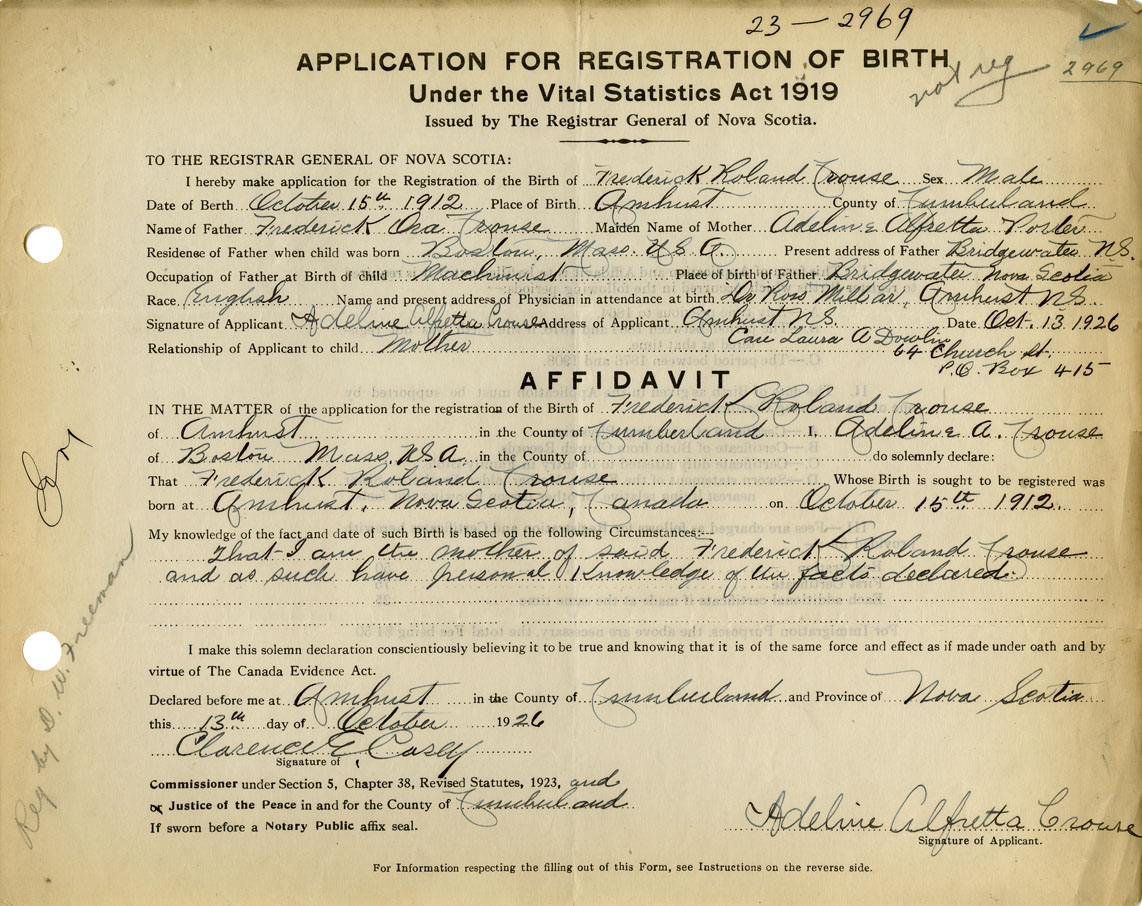 23 — 2969
APPLICATION FOR REGISTRATION OF BIRTH
not reg
2969
Under the Vital Statistics Act 1919
Issued by The Registrar General of Nova Scotia.
TO THE REGISTRAR GENERAL OF NOVA SCOTIA:
I hereby make application for the Registration of the Birth of Frederick Roland Crouse Sex Male
Date of Berth October 15th 1912 Place of Birth Amherst County of Cumberland
Name of Father Frederick Ora Crouse Maiden Name of Mother Adeline Alfretta Porter
Residense of Father when child was born Boston, Mass. U.S.A. Present address of Father Bridgewater N.S.
Occupation of Father at Birth of child Machinist Place of birth of Father Bridgewater Nova Scotia
Race English Name and present address of Physician in attendance at birth Dr Ross Millar, Amherst N.S.
Signature of Applicant Adeline Alfretta Crouse Address of Applicant Amherst N.S. Date Oct. 13 1926
Care Laura A Dowlin
Relationship of Applicant to child Mother 64 Church St.
P.O. Box 415
AFFIDAVIT
IN THE MATTER of the application for the registration of the Birth of Frederick Roland Crouse
of Amherst in the County of Cumberland I, Adeline A. Crouse
of Boston Mass. U.S.A. in the County of do solemnly declare:
That Frederick Roland Crouse Whose Birth is sought to be registered was
born at Amherst, Nova Scotia, Canada on October 15th 1912.
My knowledge of the fact and date of such Birth is based on the following Circumstances:--
That I am the mother of said Frederick Roland Crouse
and as such have personal knowledge of the facts declared.
I make this solemn declaration conscientiously believing it to be true and knowing that it is of the same force and effect as if made under oath and by
virtue of The Canada Evidence Act.
Declared before me at Amherst in the County of Cumberland and Province of Nova Scotia
this 13th day of October 1926
Clarence E Casey
Signature of
Commissioner under Section 5, Chapter 38, Revised Statutes, 1923, and
or Justice of the Peace in and for the County of Cumberland
If sworn before a Notary Public affix seal.
Adeline Alfretta Crouse
Signature of Applicant.
For Information respecting the filling out of this Form, see Instructions on the reverse side.
Reg by D. W. Freeman